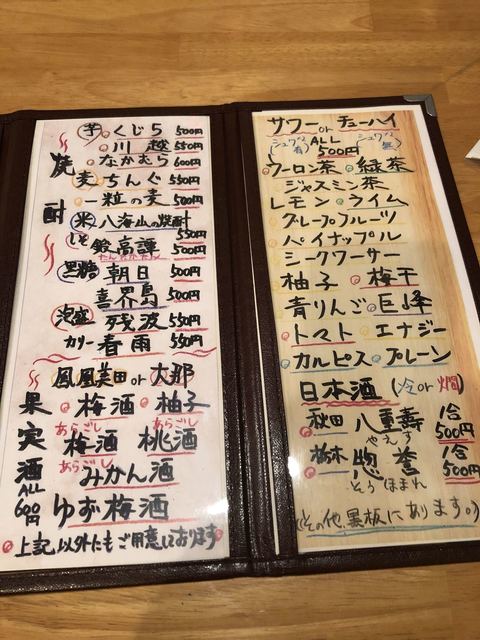 焼酎
芋 くじら 500円
川越 500円
なかむら 600円
麦 ちんぐ 550円
一粒の麦 500円
米 八海山の焼酎 550円
しそ 鍛高譚 500円
たんたかたん
黒糖 朝日 500円
喜界島 500円
泡盛 残波 550円
カリー 春雨 550円
鳳凰美田 or 大那
果実酒 ALL 600円
梅酒 柚子
あらごし あらごし
梅酒 桃酒
あらごし
みかん酒
ゆず梅酒
上記以外にもご用意しております
サワー or チューハイ
シュワ有 ALL シュワ無
500円
ウーロン茶 緑茶
ジャスミン茶
レモン ライム
グレープフルーツ
パイナップル
シークワーサー
柚子 梅干
青りんご 巨峰
トマト エナジー
カルピス プレーン
日本酒 (冷 or 燗)
秋田 八重寿 1合
やえす 500円
栃木 惣誉 1合
そうほまれ 500円
(その他、黒板にあります。)